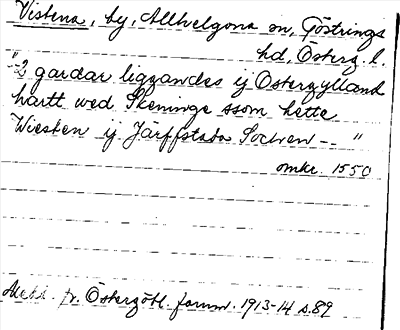 Vistena, by, Allhelgona sn, Göstrings
hd, Österg. l.
"--2 gårdar liggandes ij Östergylland
hartt wed Skeninge ssom hette
Wiesten ij Järffstada Sochen -- "
omkr. 1550
Medd. fr. Östergötl. fornm. 1913-14 s. 89